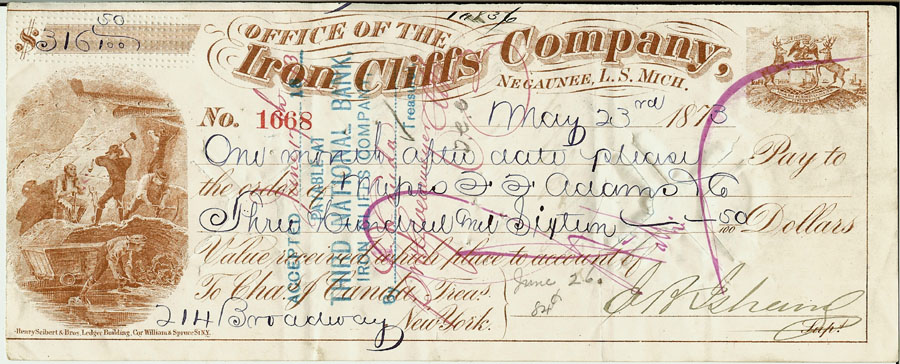 $316 50/100
OFFICE OF THE
Iron Cliffs Company,
NEGAUNEE, L. S. MICH.
No. 1668
May 23rd 1873
One month after date please Pay to
the order Adams & Co
Three hundred and Sixteen 50/100 Dollars
Value received which place to account of
To Chas. J. Canda, Treas.
214 Broadway New York.
Supt.
ACCEPTED
PAYABLE AT
THIRD NATIONAL BANK,
IRON CLIFFS COMPANY
BY
Treasurer
June 26.
Henry Seibert & Bros. Ledger Building, Cor William & Spruce St. N.Y.